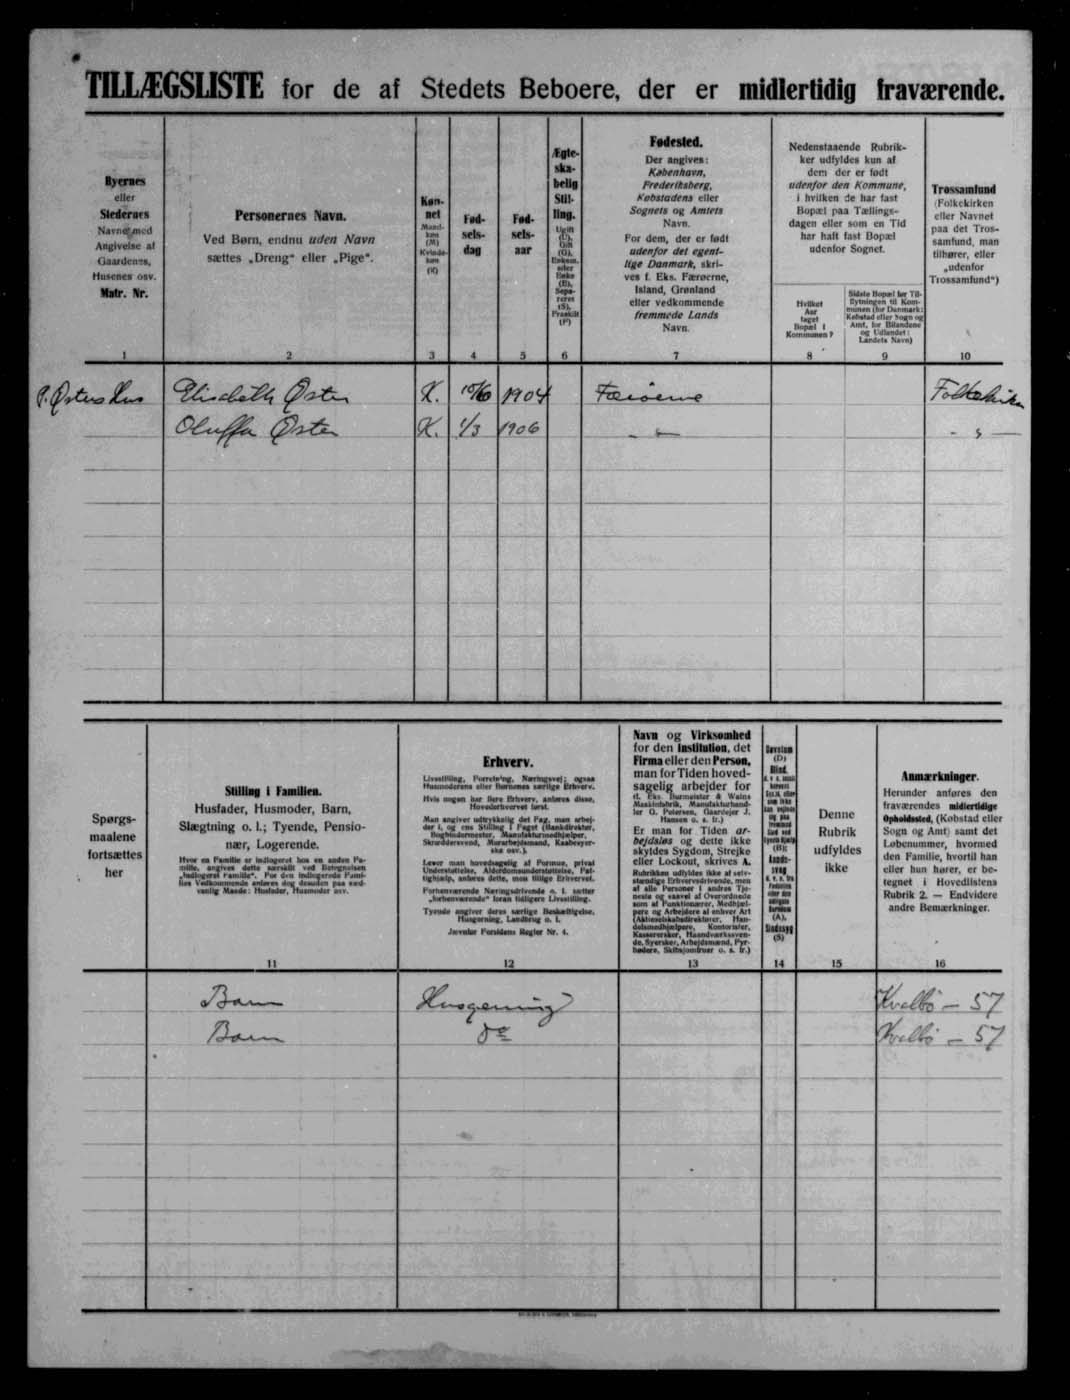 TILLÆGSLISTE for de af Stedets Beboere, der er midlertidig fraværende.
Byernes
eller
Stedernes
Navne med
Angivelse af
Gaardenes,
Husenes osv.
Matr. Nr.
1
Personernes Navn.
Ved Børn, endnu uden Navn
sættes „Dreng“ eller „Pige“.
2
Køn-
net
Mand-
køn
(M)
Kvinde-
køn
(K)
3
Fød-
sels-
dag
4
Fød-
sels-
aar
5
Ægte-
ska-
belig
Stil-
ling.
Ugift
(U),
Gift
(G),
Enkem.
eller
Enke
(E),
Sepa-
reret
(S),
Fraskilt
(F)
6
Fødested.
Der angives:
København,
Frederiksberg,
Købstadens eller
Sognets og Amtets
Navn.
For dem, der er født
udenfor det egent-
lige Danmark, skri-
ves f. Eks. Færøerne,
Island, Grønland
eller vedkommende
fremmede Lands
Navn.
7
Nedenstaaende Rubrik-
ker udfyldes kun af
dem der er født
udenfor den Kommune,
i hvilken de har fast
Bopæl paa Tællings-
dagen eller som en Tid
har haft fast Bopæl
udenfor Sognet.
Hvilket
Aar
taget
Bopæl i
Kommunen?
8
Sidste Bopæl før Til-
flytningen til Kom-
munen (for Danmark:
Købstad eller Sogn og
Amt, for Bilandene
og Udlandet:
Landets Navn)
9
Trossamfund
(Folkekirken
eller Navnet
paa det Tros-
samfund, man
tilhører, eller
„udenfor
Trossamfund“)
10
P. Østers Hus Elisabeth Østen K. 10/6 1904 Færöerne Folkekirken
Oluffa Østen K. 1/3 1906 - " - - " -
Spørgs-
maalene
fortsættes
her
Stilling i Familien.
Husfader, Husmoder, Barn,
Slægtning o. l.; Tyende, Pensio-
nær, Logerende.
Hvor en Familie er indlogeret hos en anden Fa-
milie, angives dette særskilt ved Betegnelsen
„Indlogeret Familie“. For den indlogerede Fami-
lies Vedkommende anføres dog desuden paa sæd-
vanlig Maade: Husfader, Husmoder osv.
11
Erhverv.
Livsstilling, Forretning, Næringsvej; ogsaa
Husmoderens eller Børnenes særlige Erhverv.
Hvis nogen har flere Erhverv, anføres disse,
Hovederhvervet først.
Man angiver udtrykkelig det Fag, man arbej-
der i, og ens Stilling i Faget (Bankdirektør,
Bogbindermester, Manufakturmedhjælper,
Skrædersvend, Murarbejdsmand, Kaabesyer-
ske osv.).
Lever man hovedsagelig af Formue, privat
Understøttelse, Alderdomsunderstøttelse, Fat-
tighjælp, anføres dette, men tillige Erhvervet.
Forhenværende Næringsdrivende o. l. sætter
„forhenværende“ foran tidligere Livsstilling.
Tyende angiver deres særlige Beskæftigelse,
Husgerning, Landbrug o. l.
Jævnfør Forsidens Regler Nr. 4.
12
Navn og Virksomhed
for den Institution, det
Firma eller den Person,
man for Tiden hoved-
sagelig arbejder for
(f. Eks. Burmeister & Wains
Maskinfabrik, Manufakturhand-
ler G. Petersen, Gaardejer J.
Hansen o. s. fr.)
Er man for Tiden ar-
bejdsløs og dette ikke
skyldes Sygdom, Strejke
eller Lockout, skrives A.
Rubrikken udfyldes ikke af selv-
stændige Erhvervsdrivende, men
af alle Personer i andres Tje-
neste og saavel af Overordnede
som af Funktionærer, Medhjæl-
pere og Arbejdere af enhver Art
(Aktieselskabsdirektører, Han-
delsmedhjælpere, Kontorister,
Kassererske, Haandværkssven-
de, Syersker, Arbejdsmænd, Fyr-
bødere, Skibsjomfruer o. s. fr.)
13
Døvstum
(D)
Blind,
(B);
Aands-
svag
(A),
Sindssyg
(S)
14
Denne
Rubrik
udfyldes
ikke
15
Anmærkninger.
Herunder anføres den
fraværendes midlertidige
Opholdssted, (Købstad eller
Sogn og Amt) samt det
Løbenummer, hvormed
den Familie, hvortil han
eller hun hører, er be-
tegnet i Hovedlistens
Rubrik 2. — Endvidere
andre Bemærkninger.
16
Barn Husgerning Kvalbö - 57
Barn do Kvalbö - 57